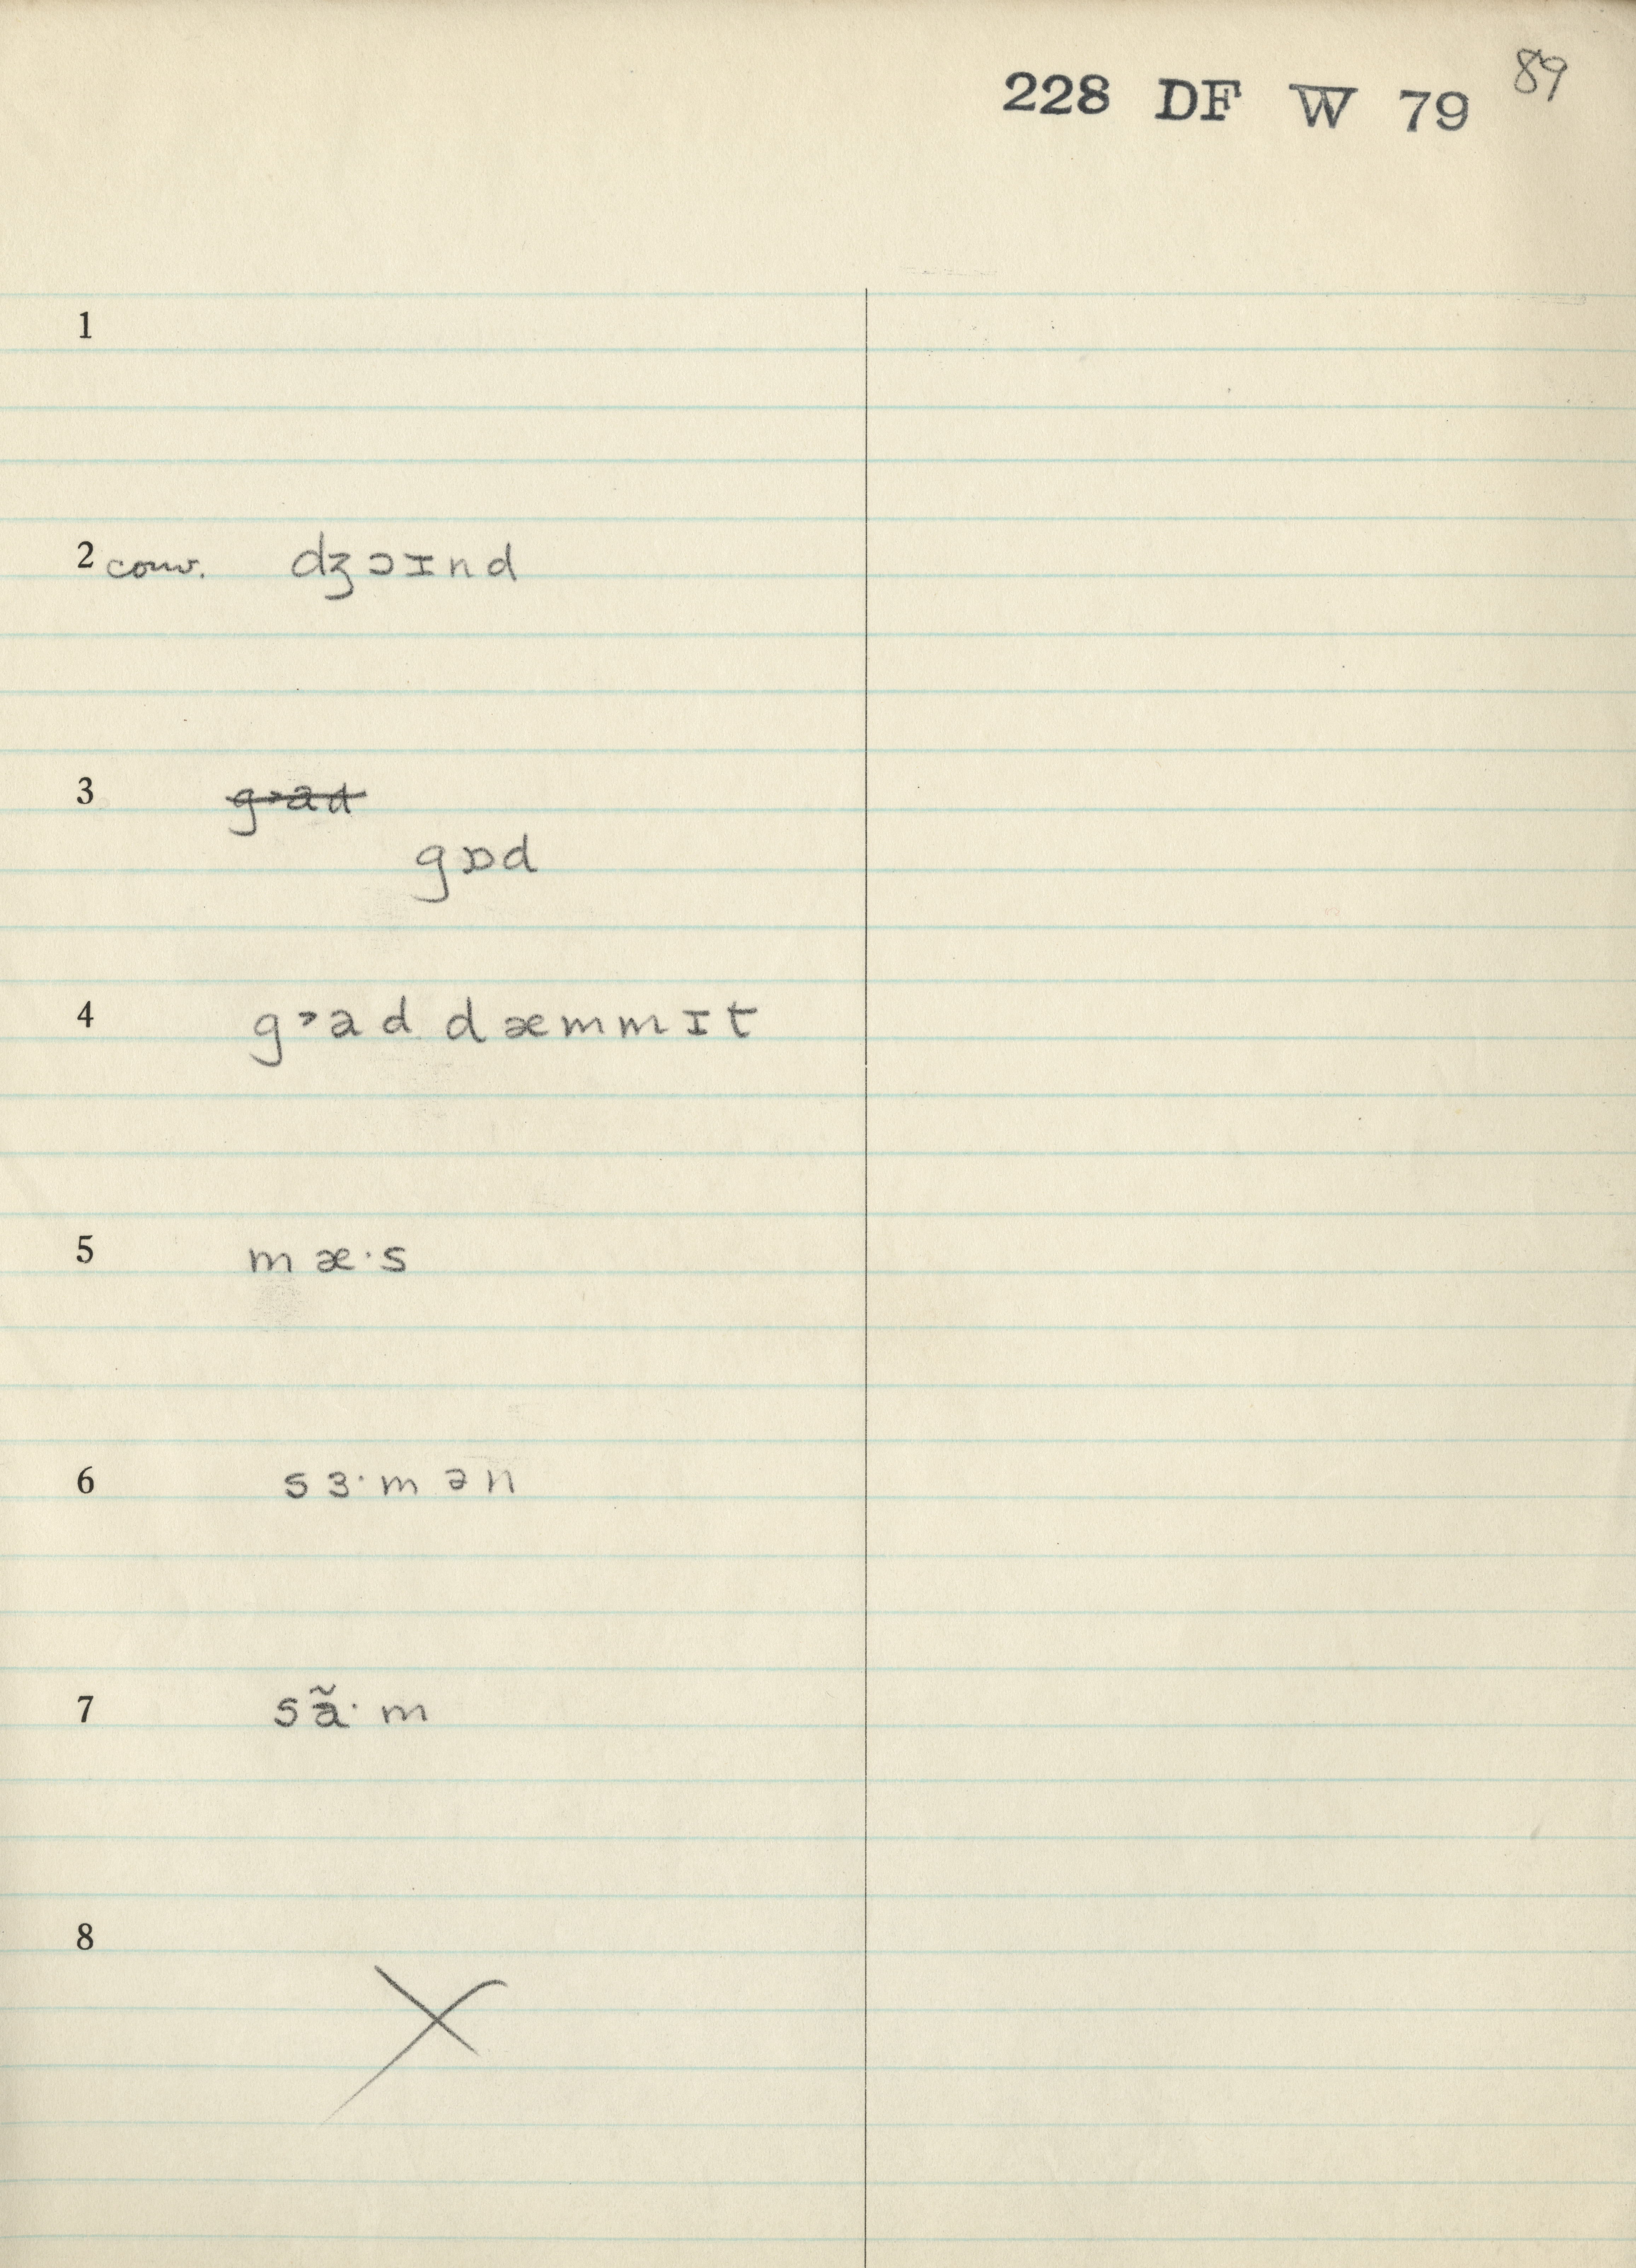 228 DF W 79 89
1
2 conv. dʒɔɪnd
3 g˃ad
gɒd
4 g˃ad dæmmɪt
5 mæ·s
6 sɜ·mən
7 sã·m
8 X